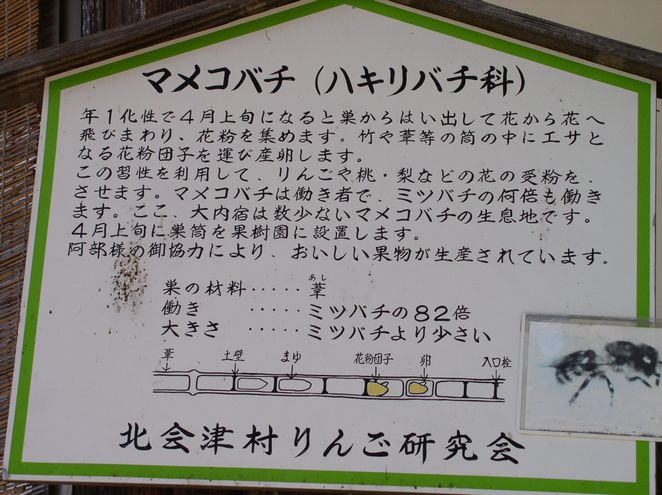 マメコバチ（ハキリバチ科）
年1化性で4月上旬になると巣からはい出して花から花へ
飛びまわり、花粉を集めます。竹や葦等の筒の中にエサと
なる花粉団子を運び産卵します。
この習性を利用して、りんごや桃・梨などの花の受粉を、
させます。マメコバチは働き者で、ミツバチの何倍も働き
ます。ここ、大内宿は数少ないマメコバチの生息地です。
4月上旬に巣筒を果樹園に設置します。
阿部様の御協力により、おいしい果物が生産されています。
あし
巣の材料‥‥‥葦
働き ‥‥‥ミツバチの82倍
大きさ ‥‥‥ミツバチより少さい
葦 土壁 まゆ 花粉団子 卵 入口栓
北会津村りんご研究会